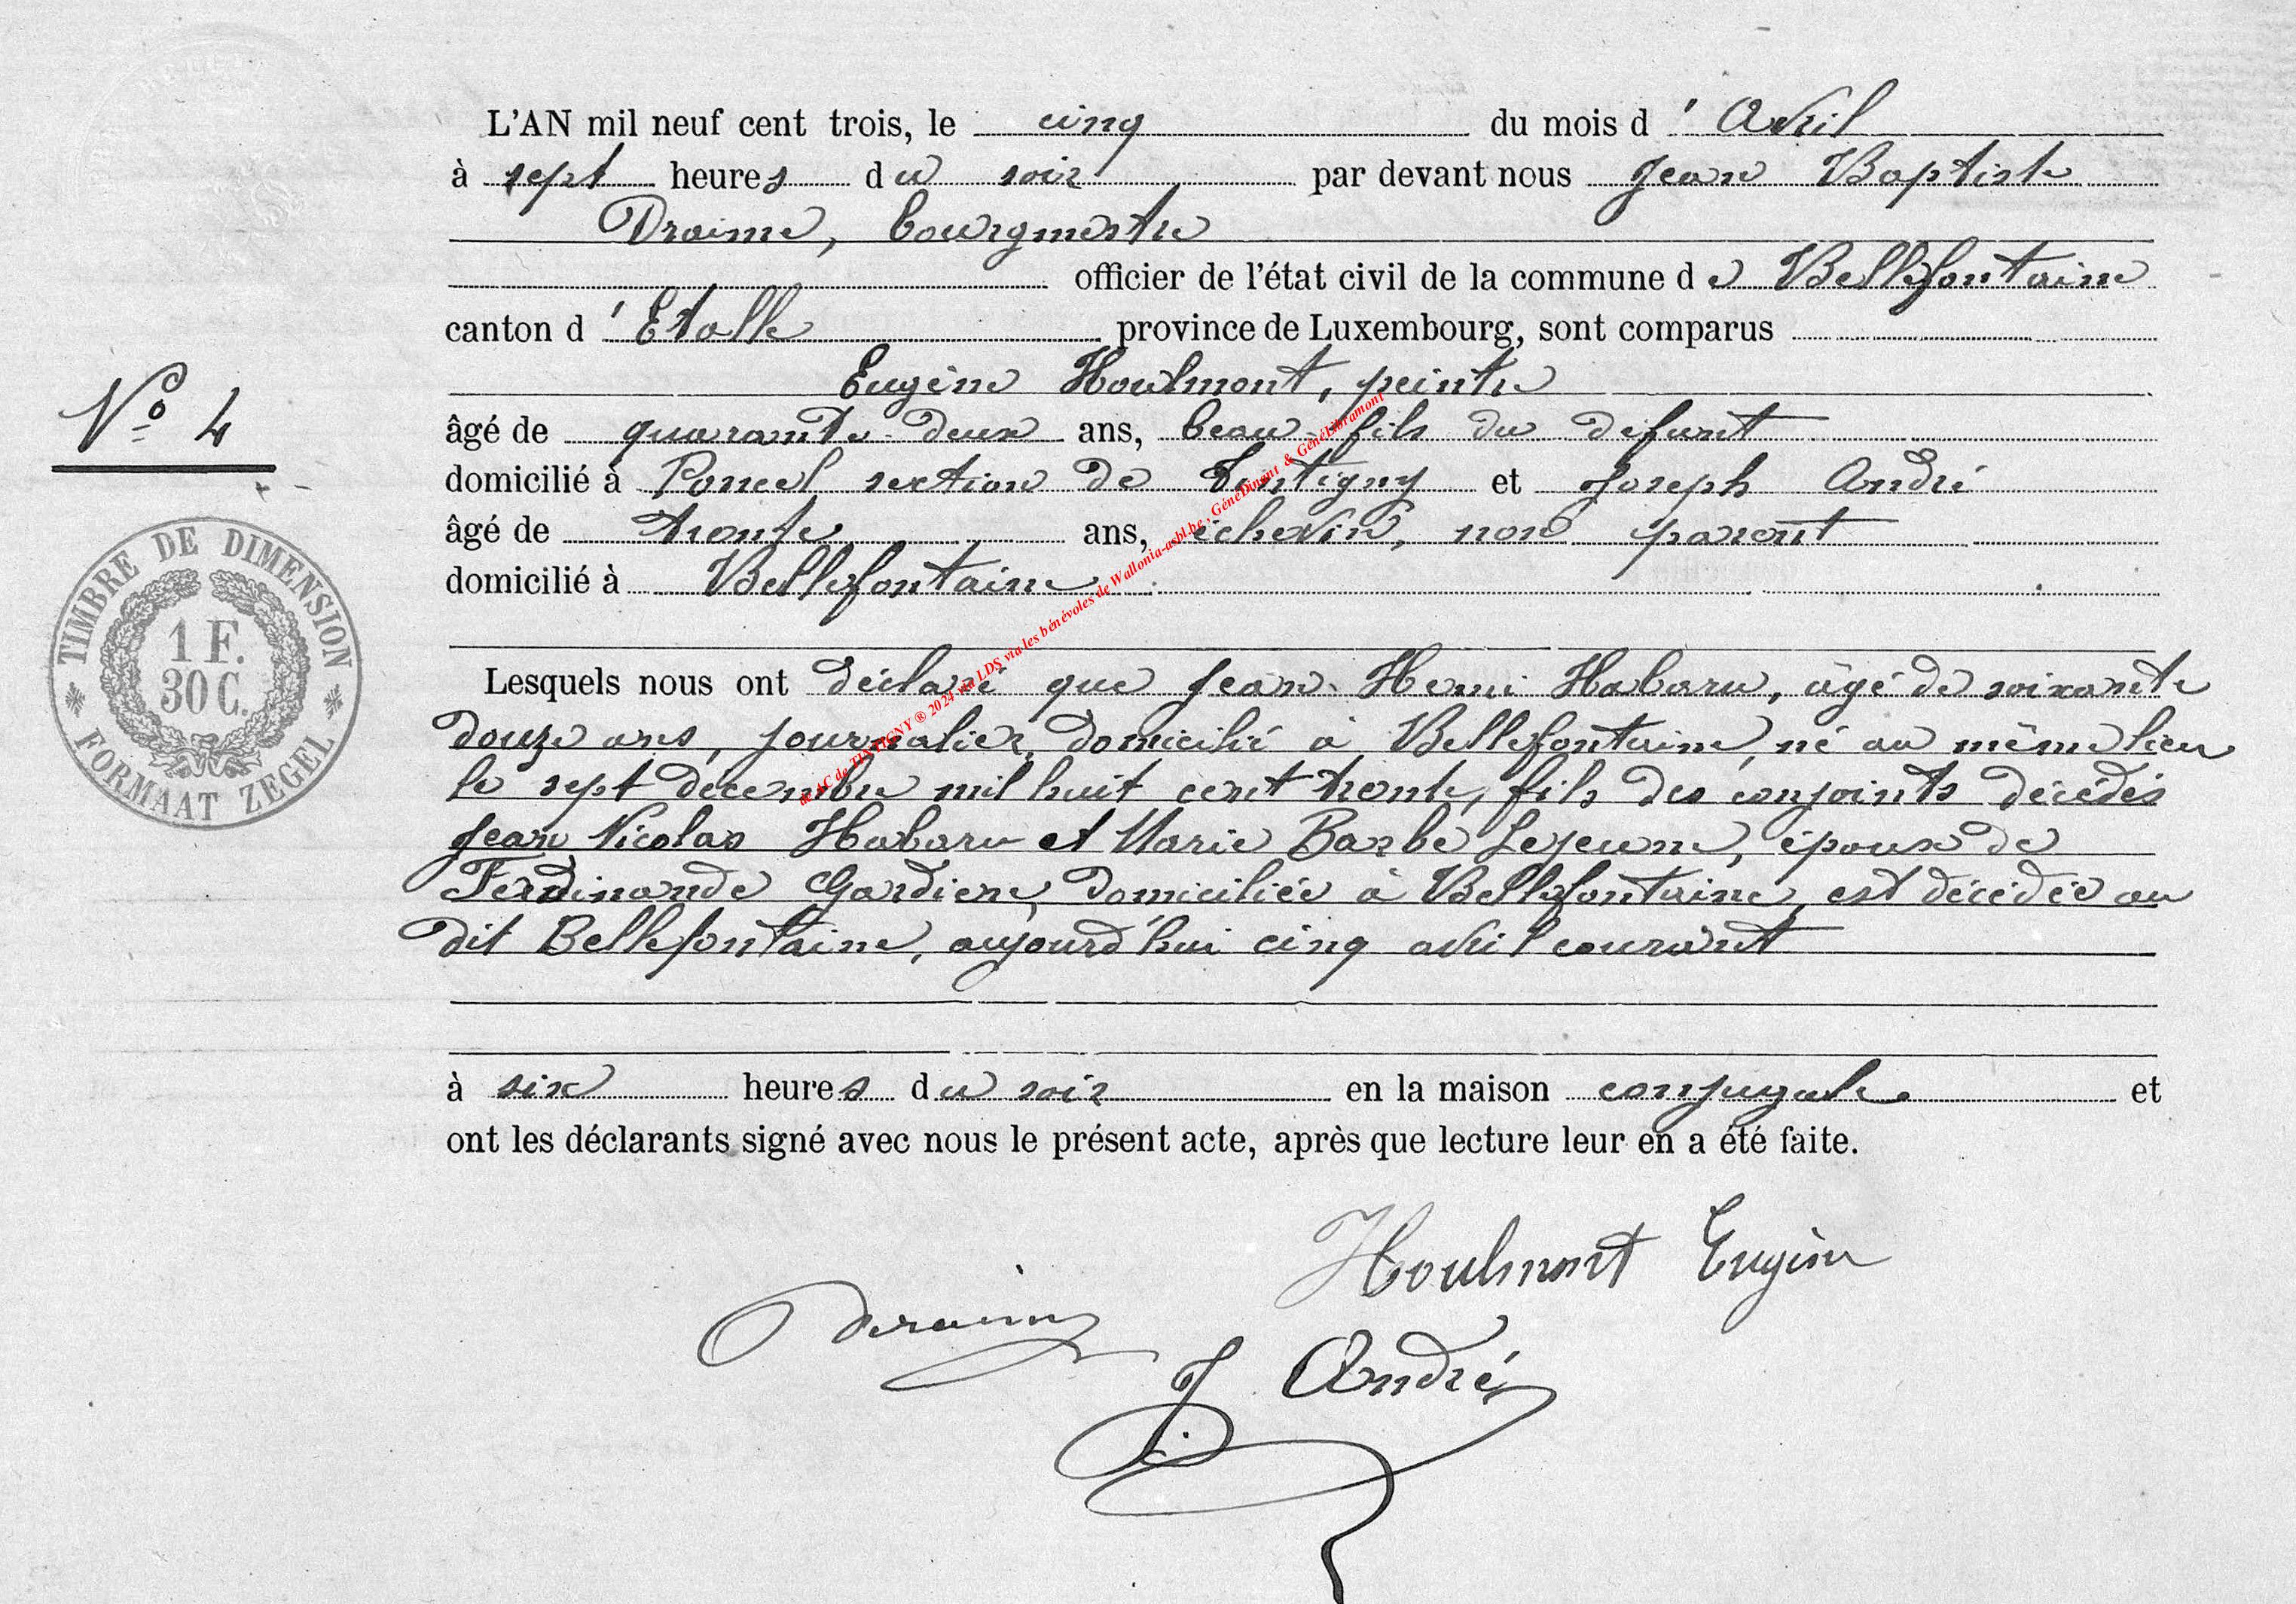 L'AN mil neuf cent trois, le cinq du mois d'Avril
à sept heures du soir par devant nous Jean Baptiste
Draime, bourgmestre
officier de l'état civil de la commune de Bellefontaine
canton d'Etalle province de Luxembourg, sont comparus
Eugène Houlmont, peintre
N° 4
âgé de quarante-deux ans, beau-fils du défunt
domicilié à Poncel section de Tintigny et Joseph André
âgé de trente ans, échevin, non parent
domicilié à Bellefontaine
TIMBRE DE DIMENSION
1 F.
30 C.
FORMAAT ZEGEL
Lesquels nous ont déclaré que Jean Henri Habaru, âgé de soixante
douze ans, journalier, domicilié à Bellefontaine, né au même lieu
le sept décembre mil huit cent trente, fils des conjoints décédés
Jean Nicolas Habaru et Marie Barbe Lejeune, époux de
Ferdinande Gardien, domiciliée à Bellefontaine, est décédée au
dit Bellefontaine, aujourd'hui cinq avril courant
à six heures du soir en la maison conjugale et
ont les déclarants signé avec nous le présent acte, après que lecture leur en a été faite.
Houlmont Eugène
Draime
J. André
de AC de TINTIGNY ® 2024 via LDS via les bénévoles de Wallonia-asbl.be, GénéDinant & GénéLibramont